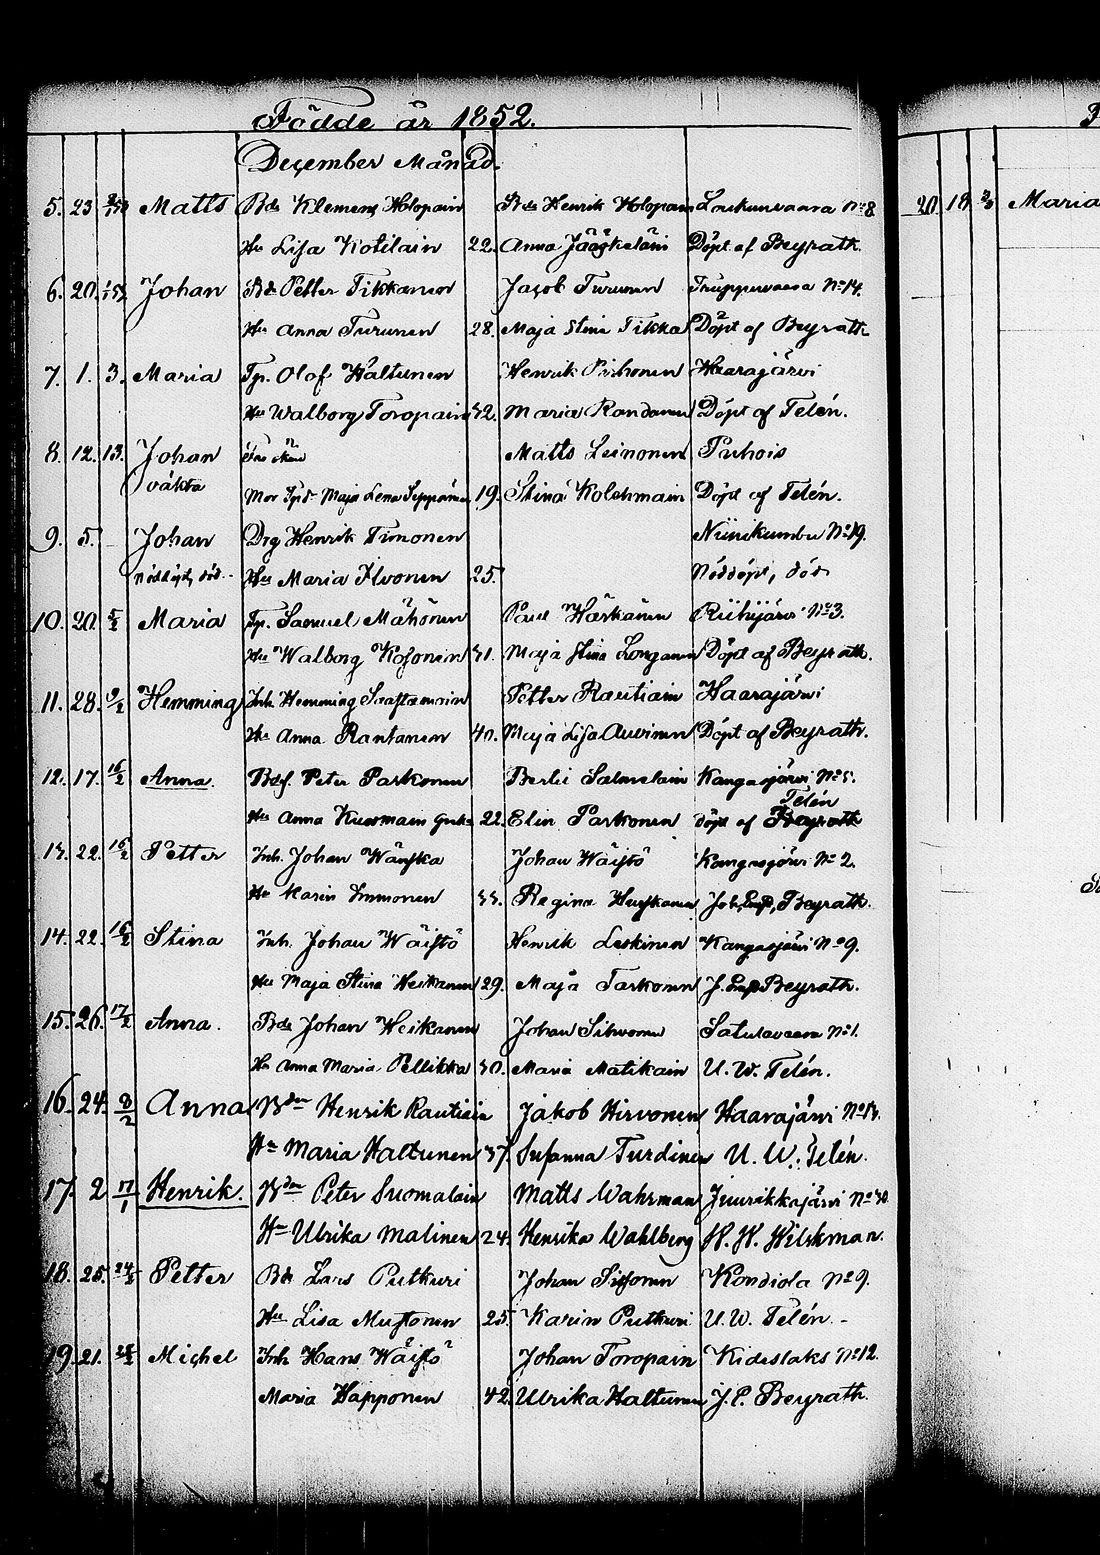 Födde år 1852.
December Månad.
5. 23 Matts Bds Klemens Holopain Bds Henrik Holopain Loukunvaara No 8
Hu Lisa Kotilain 22. Anna Jääskeläin Döpt af Beyrath.
6. 20. Johan Bds Petter Tikkanen Jacob Turunen Truppuvaara No 14.
Hu Anna Turunen 28. Maja Stina Tikka Döpt af Beyrath
7. 1. 3. Maria Tp. Olof Haltunen Henrik Pirhonen Haarajärvi
Hu Walborg Toropain 32. Maria Rondanen Döpt af Telén.
8. 12. 13. Johan Matts Leinonen Puhois
oäkta Mor Maja Lena Seppänen 19. Stina Kolehmain Döpt af Telén.
9. 5. Johan Drg Henrik Timonen Niinikumbu No 19.
nöddöpt, död. Hu Maria Ilvonen 25. Nöddöpt, död
10. 20. 5/2 Maria Tp. Samuel Mähönen Paul Häskänen Riihijärvi No 3.
Hu Walborg Kosonen 31. Maja Stina Longanen Döpt af Beyrath.
11. 28. 9/2 Hemming Inh. Hemming Saastamoin Petter Rautiain Haarajärvi
Hu Anna Rantanen 40. Maja Lisa Auvinen Döpt af Beyrath.
12. 17. 16/2 Anna. Bdf. Peter Parkonen Bertil Salmelain Kangasjärvi No 5.
Telén
Hu Anna Kuosmain 22. Elin Parkonen Döpt af Beyrath
13. 22. 16/2 Petter Inh. Johan Wänska Johan Wäistö Kangasjärvi No 2.
Hu Karin Immonen 33. Regina Huskanen Joh. Emp. Beyrath.
14. 22. 16/2 Stina Inh. Johan Wäistö Henrik Leskinen Kangasjärvi No 9.
Hu Maja Stina Heikanen 29. Maja Tarkonen J. Emp Beyrath.
15. 26. 17/2 Anna. Bds Johan Heikanen Johan Sihvonen Satulavaara No 1.
Hu Anna Maria Pellikka 30. Maria Matikain U. W. Telén.
16. 24. 8/2 Anna Bdn Henrik Rautiain Jakob Hirvonen Haarajärvi No 13.
Hu Maria Haltunen 37. Susanna Turdinen U. W. Telén.
17. 2 17/1 Henrik. Bdn Peter Suomalain Matts Wahrman Juurikkajärvi No 30.
Hu Ulrika Malinen 24. Henrika Wahlberg H. H. Wilskman.
18. 25. Petter Bds Lars Putkuri Johan Sissonen Kondiola No 9.
Hu Lisa Mustonen 25. Karin Putkuri U. W. Telén.
19. 21. Michel Inh Hans Wäistö Johan Toropain Kideslaks No 12.
Maria Happonen 42. Ulrika Haltunen J. E. Beyrath.
20. 18. Maria